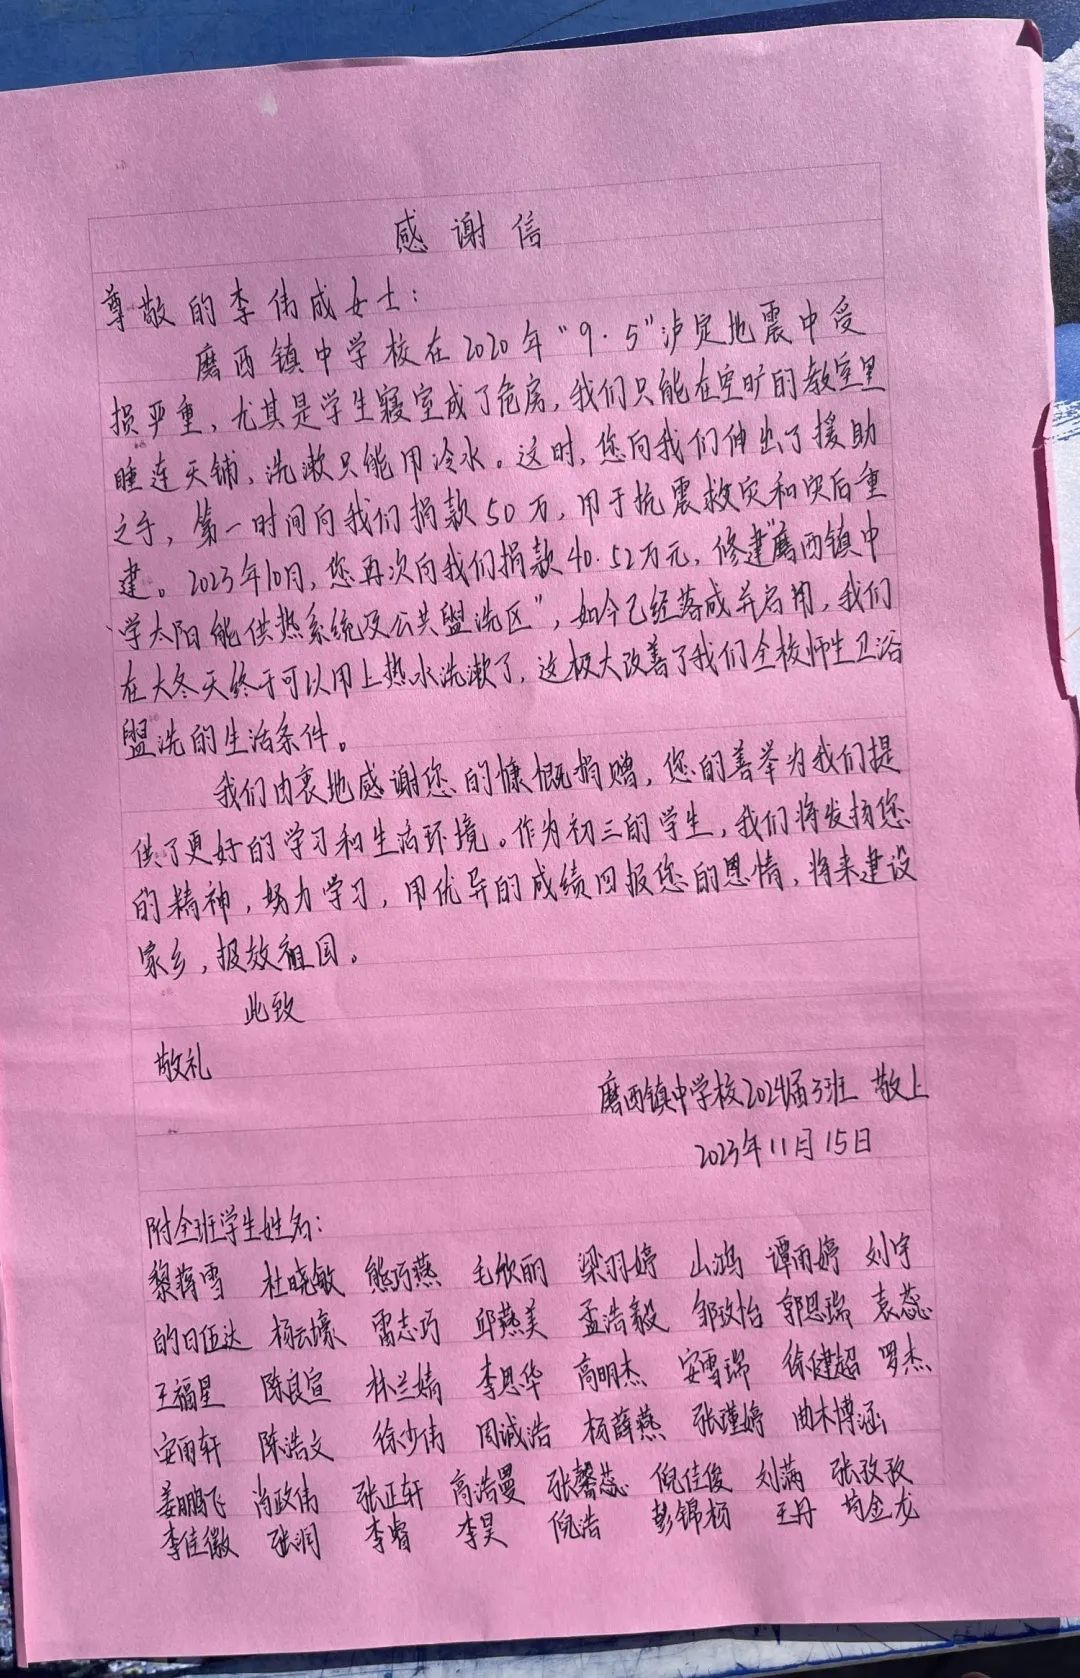 感谢信
尊敬的李伟成女士：
磨西镇中学校在2020年“9·5”泸定地震中受
损严重，尤其是学生寝室成了危房，我们只能在空旷的教室里
睡连天铺，洗漱只能用冷水。这时，您向我们伸出了援助
之手，第一时间向我们捐款50万，用于抗震救灾和灾后重
建。2023年10月，您再次向我们捐款40.52万元，修建“磨西镇中
学太阳能供热系统及公共盥洗区”，如今已经落成并启用，我们
在大冬天终于可以用上热水洗漱了，这极大改善了我们全校师生卫浴
盥洗的生活条件。
我们内衷地感谢您的慷慨捐赠，您的善举为我们提
供了更好的学习和生活环境。作为初三的学生，我们将发扬您
的精神，努力学习，用优异的成绩回报您的恩情，将来建设
家乡，报效祖国。
此致
敬礼
磨西镇中学校2024届3班 敬上
2023年11月15日
附全班学生姓名：
黎蒋雪 杜晓敏 熊巧燕 毛欣丽 梁羽婷 山鸿 谭雨婷 刘宇
的日伍达 杨云濠 雷志巧 邱燕美 孟浩毅 邹玫怡 郭思瑞 袁蕊
王福星 陈良宣 林兰婧 李恩华 高明杰 安雪瑞 徐健超 罗杰
安雨轩 陈浩文 徐少伟 周诚浩 杨薛燕 张瑾婷 曲木博涵
姜鹏飞 肖政伟 张正轩 高浩曼 张馨蕊 倪佳俊 刘满 张孜孜
李佳徽 张润 李睿 李昊 倪浩 彭锦杨 王丹 金龙